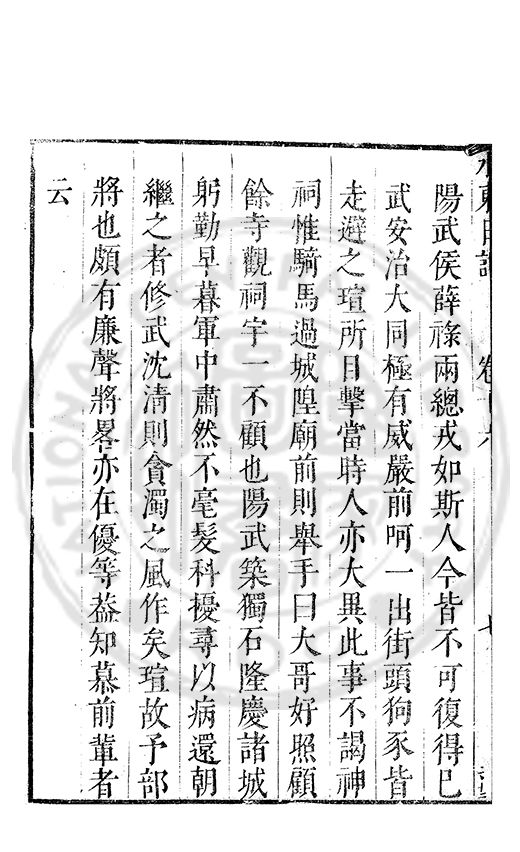 陽武侯薛祿兩總戎如斯人今皆不可復得巳
武安治大同極有威嚴前呵一出街頭狗豕皆
走避之瑄所目擊當時人亦大異此事不謁神
祠惟騎馬過城隍廟前則舉手曰大哥好照顧
餘寺觀祠宇一不顧也陽武築獨石隆慶諸城
躬勤早暮軍中肅然不毫髮科擾尋以病還朝
繼之者修武沈清則貪濁之風作矣瑄故予部
將也頗有廉聲將畧亦在優等葢知慕前輩者
云